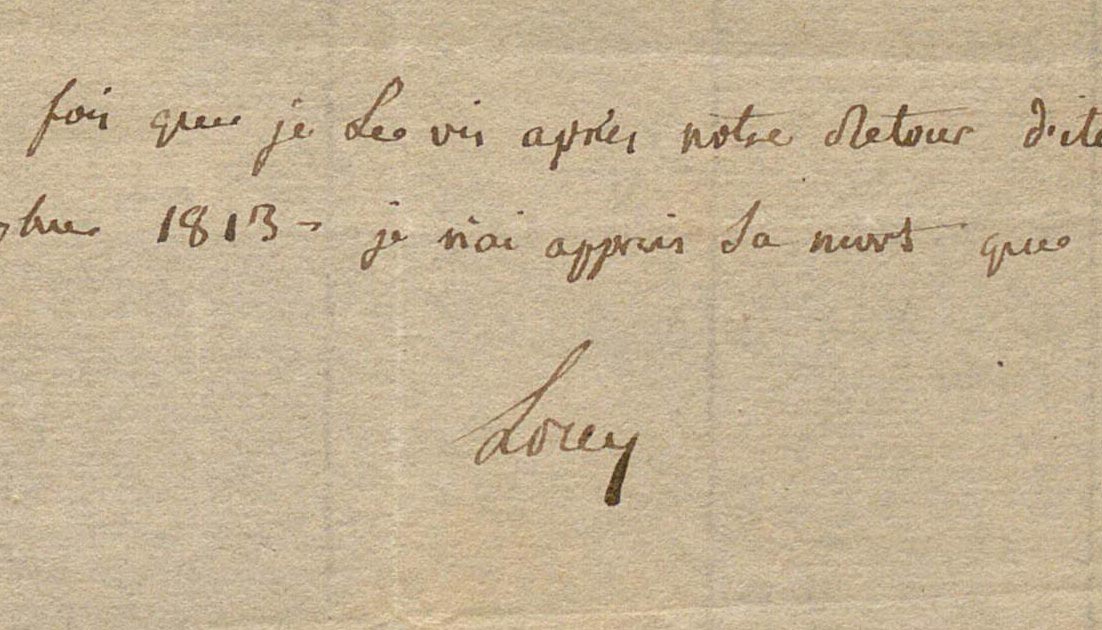 fois que je Le vis après notre Retour d'ita
bre 1813 - je n'ai appris Sa mort que
Lorey